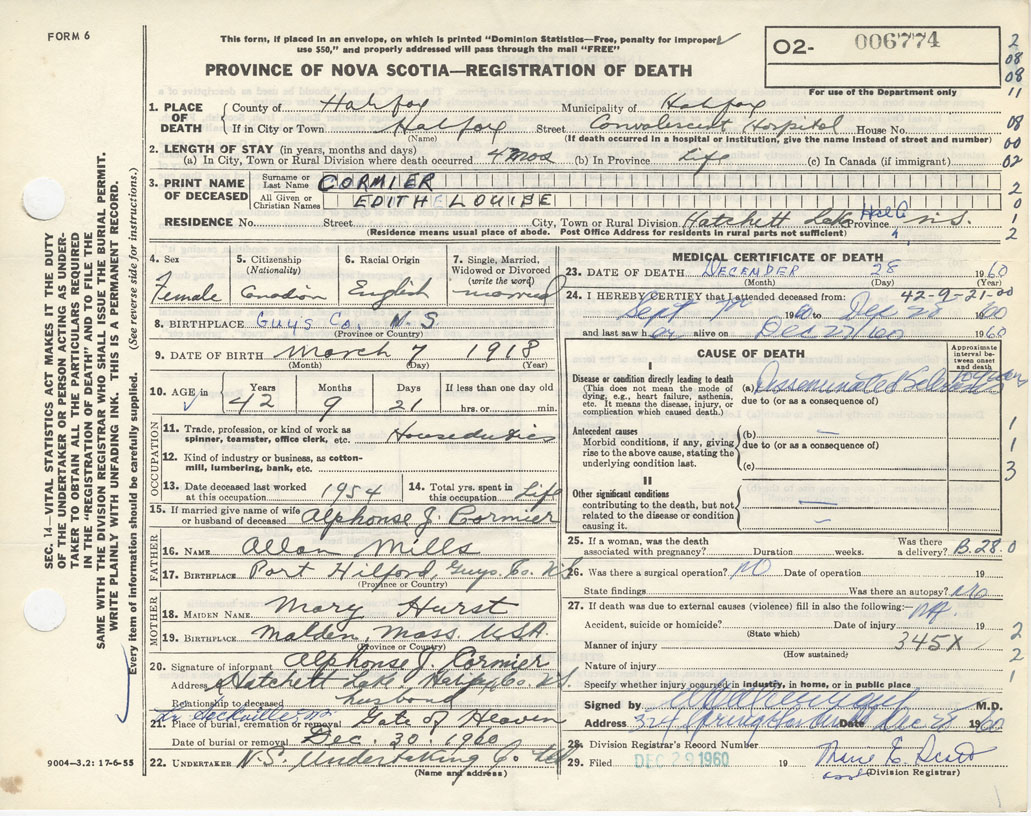 FORM 6
This form, if placed in an envelope, on which is printed "Dominion Statistics—Free, penalty for improper
use $50," and properly addressed will pass through the mail "FREE"
O2- 006774
For use of the Department only
PROVINCE OF NOVA SCOTIA—REGISTRATION OF DEATH
1. PLACE OF DEATH County of Halifax Municipality of Halifax
If in City or Town Halifax Street Convalescent Hospital House No.
(Name) (If death occurred in a hospital or institution, give the name instead of street and number)
2. LENGTH OF STAY (in years, months and days)
(a) In City, Town or Rural Division where death occurred 4 mos (b) In Province Life (c) In Canada (if immigrant)
3. PRINT NAME OF DECEASED Surname or Last Name CORMIER
All Given or Christian Names EDITH LOUISE
RESIDENCE No. Street City, Town or Rural Division Hatchett Lake Hfx Co Province N.S.
(Residence means usual place of abode. Post Office Address for residents in rural parts not sufficient)
4. Sex Female
5. Citizenship (Nationality) Canadian
6. Racial Origin English
7. Single, Married, Widowed or Divorced (write the word) married
8. BIRTHPLACE Guys Co. N.S.
(Province or Country)
9. DATE OF BIRTH March 7 1918
(Month) (Day) (Year)
10. AGE in Years 42 Months 9 Days 21 If less than one day old hrs. or min.
OCCUPATION
11. Trade, profession, or kind of work as spinner, teamster, office clerk, etc. Houseduties
12. Kind of industry or business, as cotton-mill, lumbering, bank, etc.
13. Date deceased last worked at this occupation 1954
14. Total yrs. spent in this occupation Life
15. If married give name of wife or husband of deceased Alphonse J. Cormier
FATHER
16. NAME Allan Mills
17. BIRTHPLACE Port Hilford, Guys. Co. N.S.
(Province or Country)
MOTHER
18. MAIDEN NAME Mary Hurst
19. BIRTHPLACE Malden, Mass. U.S.A.
(Province or Country)
20. Signature of informant Alphonse J. Cormier
Address Hatchett Lake Halifax Co. N.S.
Relationship to deceased husband
21. Place of burial, cremation or removal Gate of Heaven
Date of burial or removal Dec. 30, 1960
22. UNDERTAKER N.S. Undertaking Co Ltd
(Name and address)
9004—3.2: 17-6-55
MEDICAL CERTIFICATE OF DEATH
23. DATE OF DEATH DECEMBER 28 1960
(Month) (Day) (Year)
24. I HEREBY CERTIFY that I attended deceased from: 42-9-21-00
Sept 1960 to Dec 28 1960
and last saw her alive on Dec 27/60 1960
CAUSE OF DEATH
Approximate interval between onset and death
I
Disease or condition directly leading to death (a) Disseminated Sclerosis
(This does not mean the mode of dying, e.g., heart failure, asthenia, etc. It means the disease, injury, or complication which caused death.)
due to (or as a consequence of)
Antecedent causes (b) —
Morbid conditions, if any, giving rise to the above cause, stating the underlying condition last.
due to (or as a consequence of)
(c) —
II
Other significant conditions —
contributing to the death, but not related to the disease or condition causing it. —
25. If a woman, was the death associated with pregnancy? Duration weeks. Was there a delivery? B.28.0
26. Was there a surgical operation? NO Date of operation 19
State findings Was there an autopsy? No
27. If death was due to external causes (violence) fill in also the following:—
Accident, suicide or homicide? Date of injury 19
(State which)
Manner of injury 345X
(How sustained)
Nature of injury
Specify whether injury occurred in industry, in home, or in public place
Signed by M.D.
Address 324 Spring Garden Date Dec 28 1960
28. Division Registrar's Record Number
29. Filed DEC 29 1960 19 Scott
(Division Registrar)
SEC. 14—VITAL STATISTICS ACT MAKES IT THE DUTY
OF THE UNDERTAKER OR PERSON ACTING AS UNDER-
TAKER TO OBTAIN ALL THE PARTICULARS REQUIRED
IN THE "REGISTRATION OF DEATH" AND TO FILE THE
SAME WITH THE DIVISION REGISTRAR WHO SHALL ISSUE THE BURIAL PERMIT.
WRITE PLAINLY WITH UNFADING INK. THIS IS A PERMANENT RECORD.
Every item of information should be carefully supplied. (See reverse side for instructions.)
2
08
08
11
08
00
02
2
0
1
2
1
1
3
2
2
1